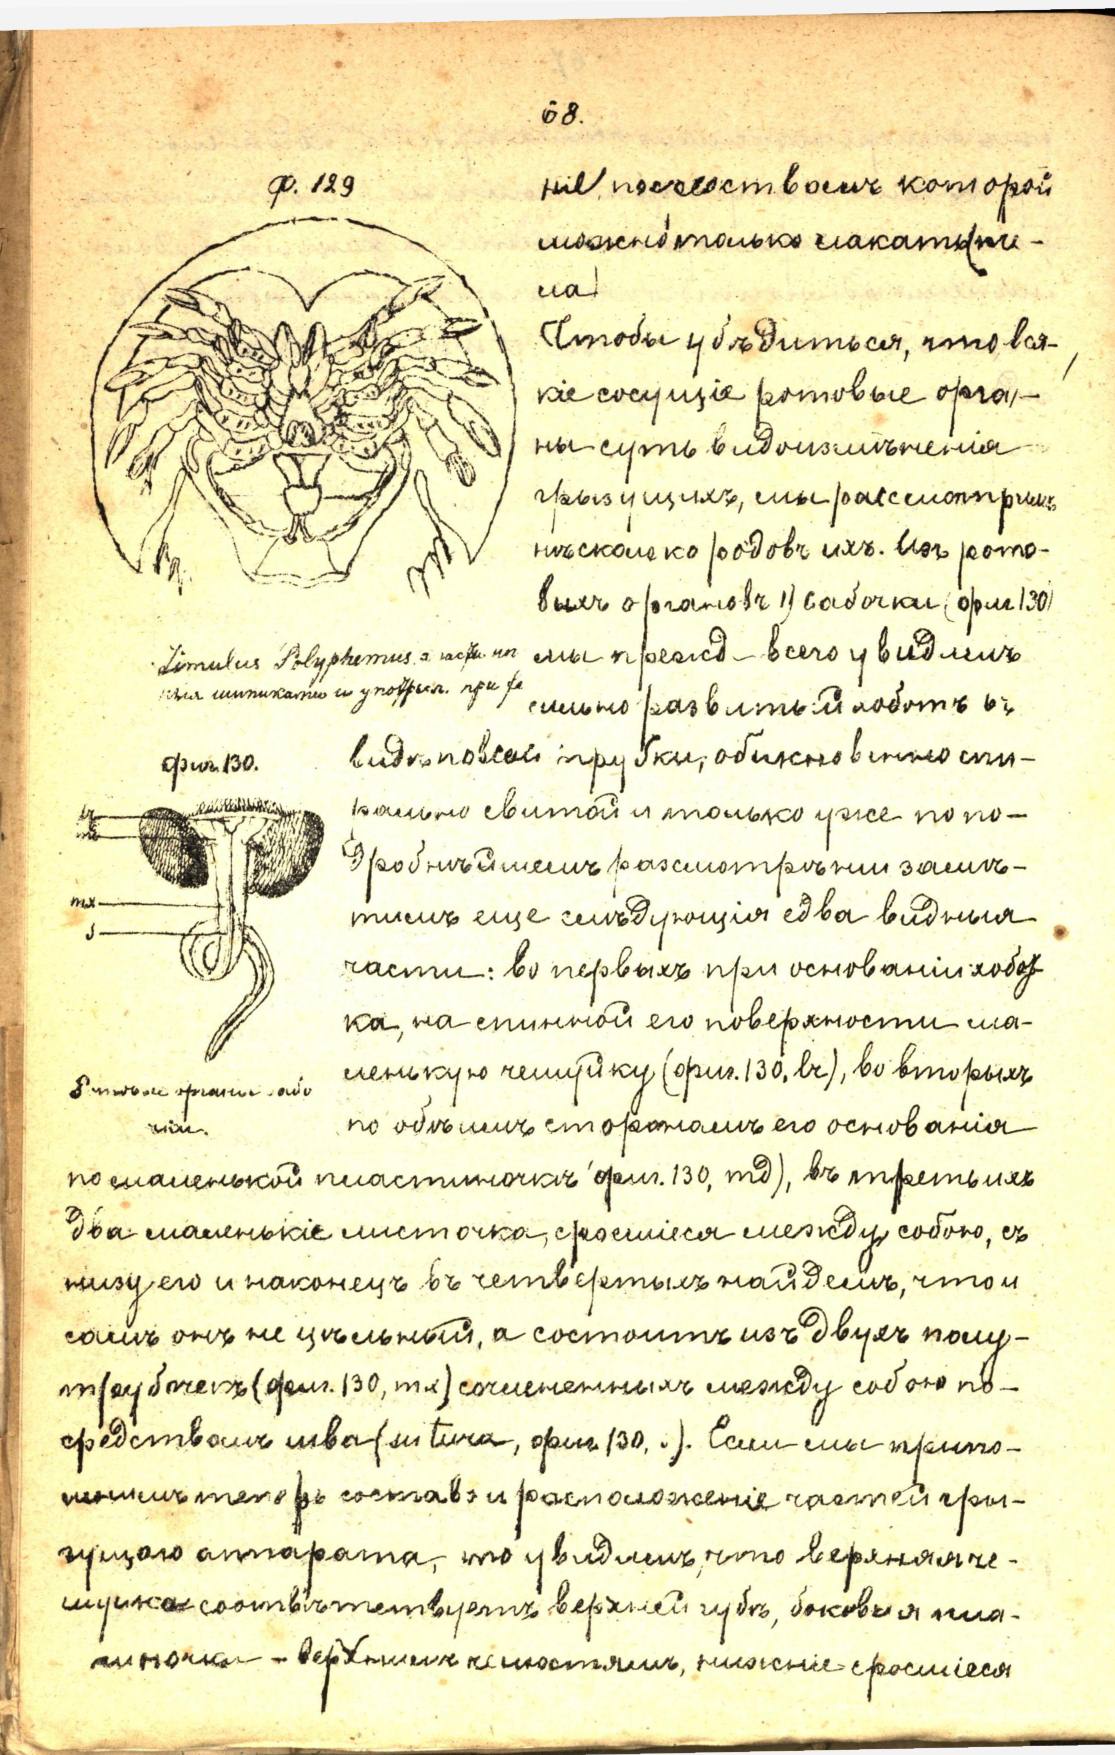 68.
Ф. 129
ніе, посредствомъ которой
можно только лакать (пче-
ла)
Чтобы убѣдиться, что вся-
кіе сосущіе ротовые орга-
ны суть видоизмѣненія
грызущихъ, мы разсмотримъ
нѣсколько родовъ ихъ. Изъ рото-
выхъ органовъ 1) бабочки (фиг. 130)
мы прежд- всего увидимъ
сильно развитый хоботъ въ
Limulus Polyphemus
шипиками и употребл. при
фиг. 130.
видѣ полой трубки, обыкновенно спи-
рально свитой и только уже по по-
дробнѣйшемъ разсмотрѣніи замѣ-
тимъ еще слѣдующія едва видныя
части: во первыхъ при основаніи хобот
ка, на спинной его поверхности ма-
ленькую чешуйку (фиг. 130, lr), во вторыхъ
по обѣимъ сторонамъ его основанія
lr
md
mx
s
Ротовые органы бабо
чки.
по маленькой пластиночкѣ (фиг. 130, md), въ третьихъ
два маленькіе листочка, сросшіеся между собою, съ
низу его и наконецъ въ четвертыхъ найдемъ, что и
самъ онъ не цѣльный, а состоитъ изъ двухъ полу-
трубочекъ (фиг. 130, mx) сочлененныхъ между собою по-
средствомъ шва (sutura, фиг. 130, s). Если мы припо-
мнимъ теперь составъ и расположеніе частей гры-
зущаго аппарата, то увидимъ, что верхняя че-
шуйка соотвѣтствуетъ верхней губѣ, боковыя пла-
тиночки - верхнимъ челюстямъ, нижніе сросшіеся